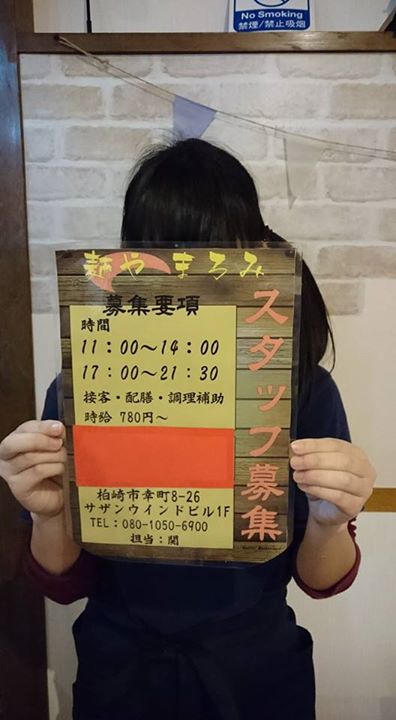 No Smoking
禁煙/禁止吸烟
麺や まろみ
スタッフ募集
募集要項
時間
11:00～14:00
17:00～21:30
接客・配膳・調理補助
時給 780円～
柏崎市幸町8-26
サザンウインドビル1F
TEL:080-1050-6900
担当:関